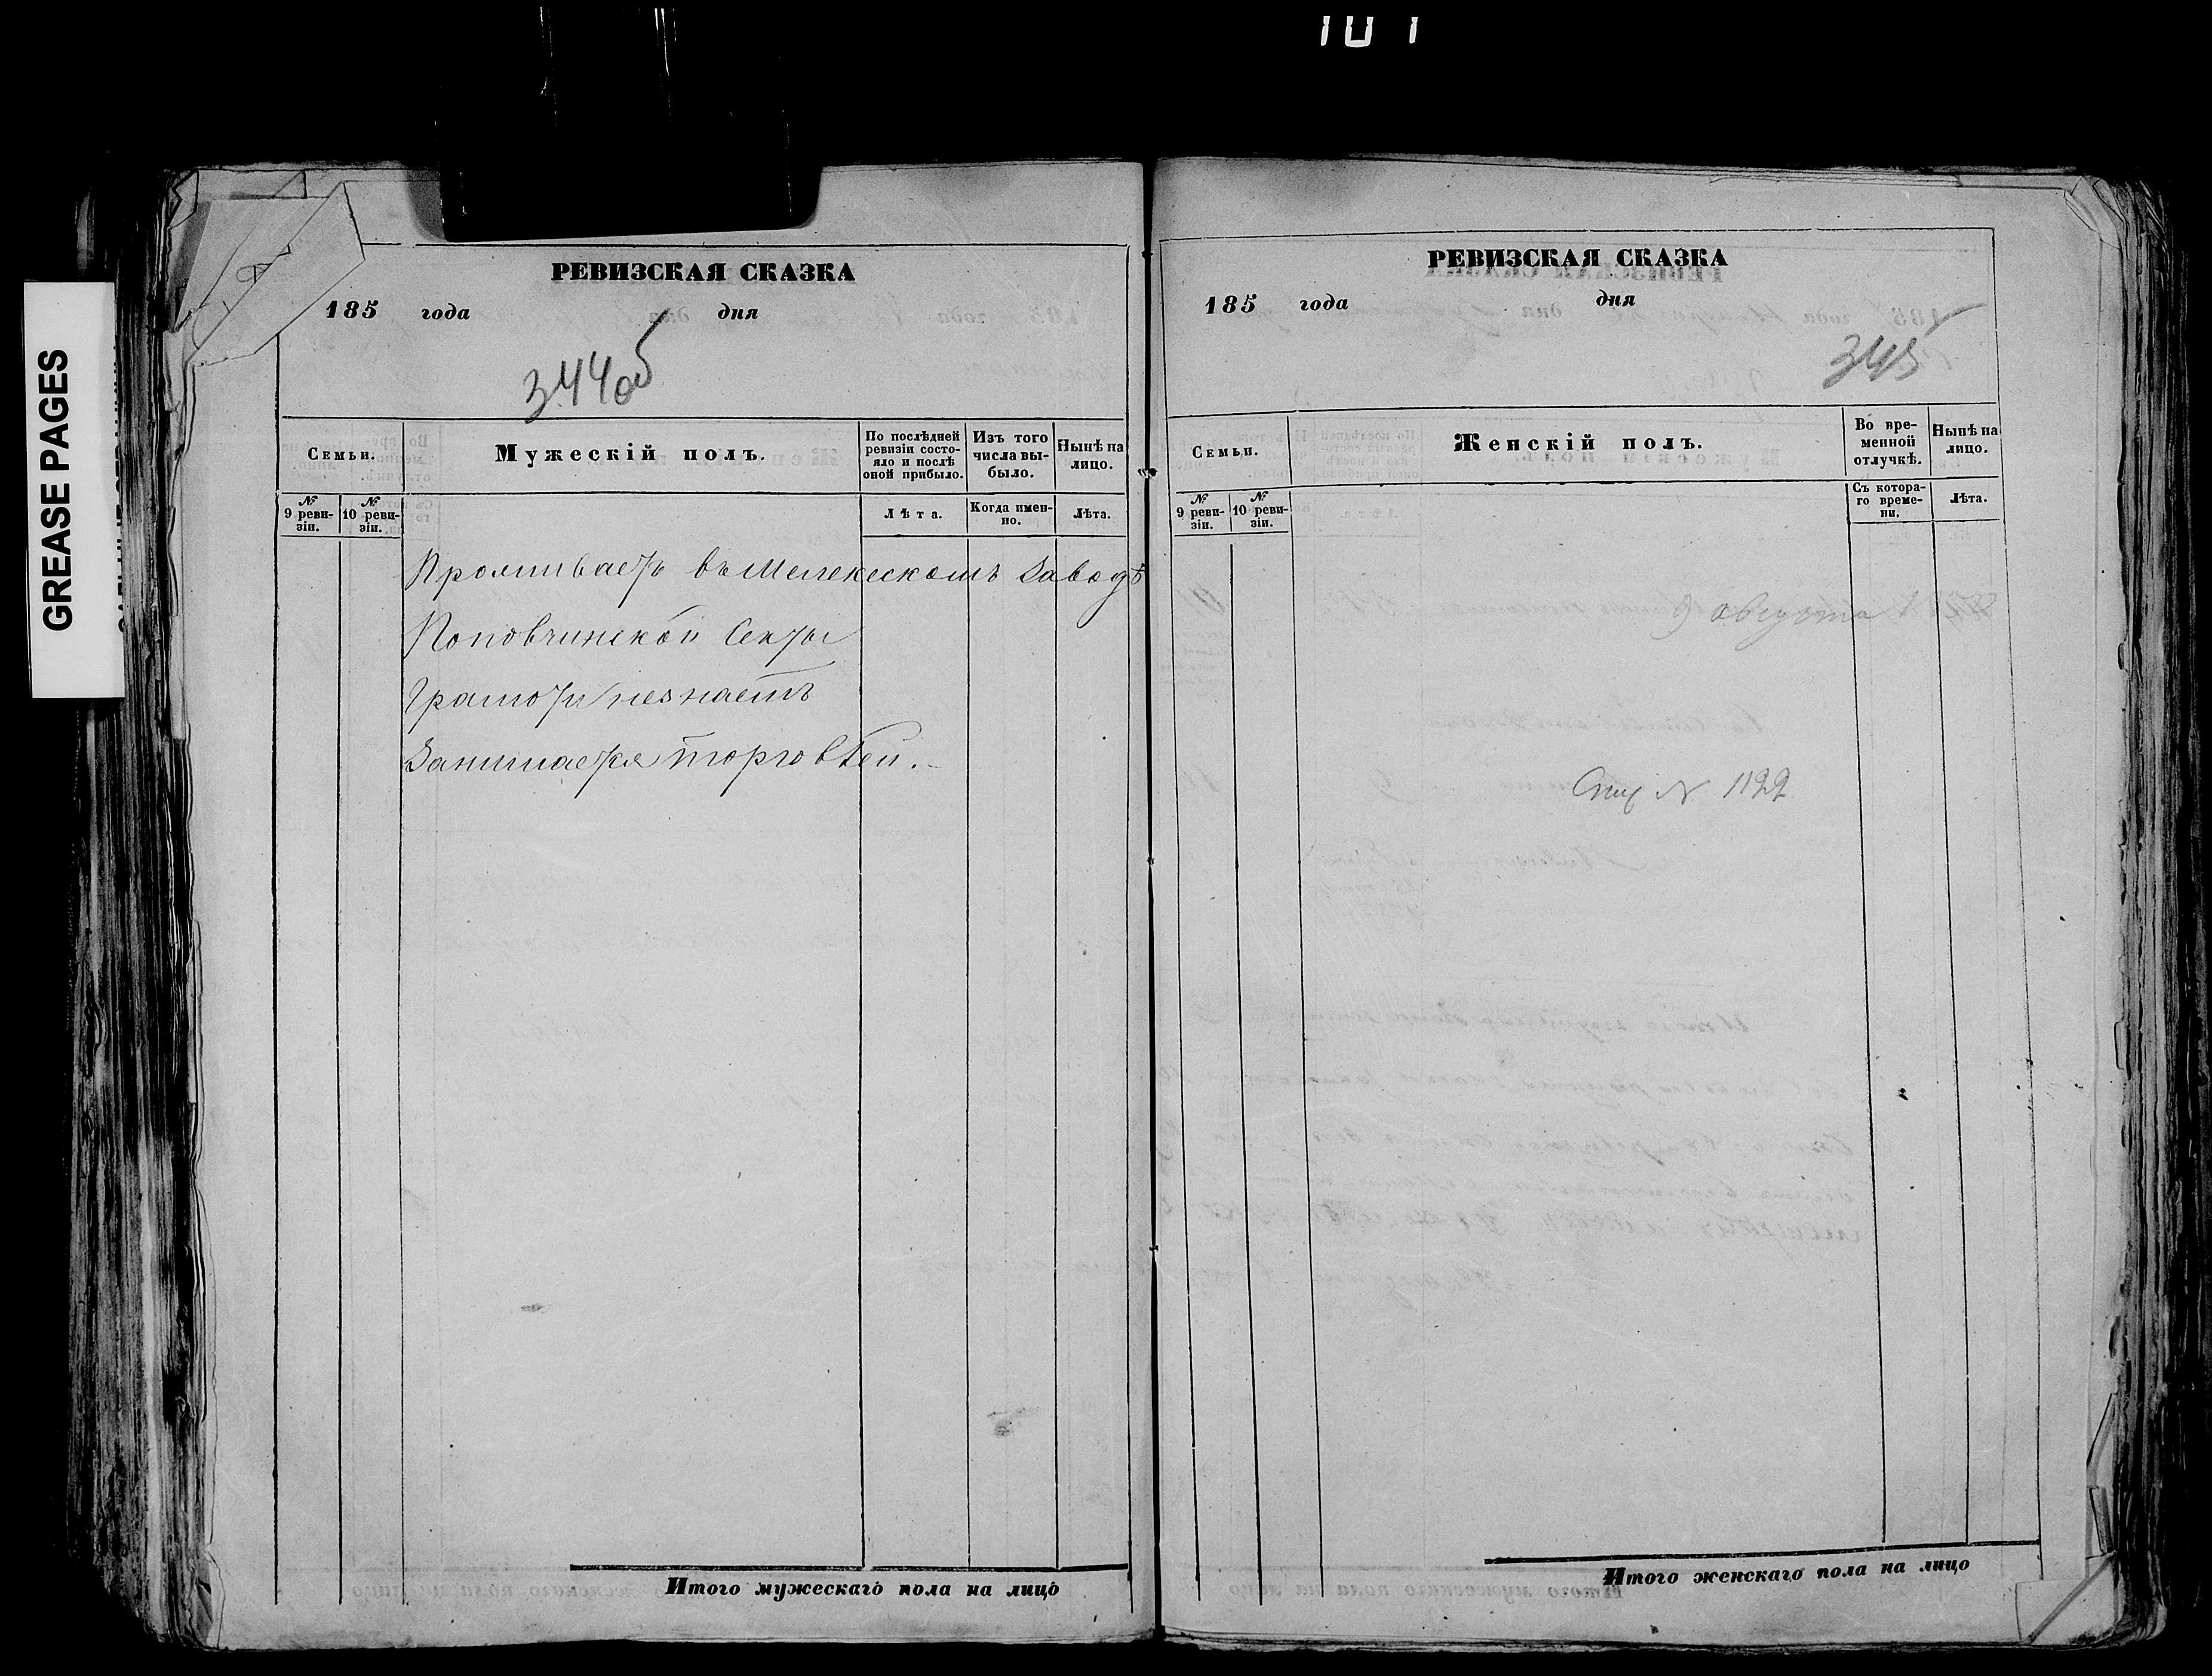 101
GREASE PAGES
РЕВИЗСКАЯ СКАЗКА
185 года дня
344об
Семьи.
Мужескій полъ.
По послѣдней ревизіи состояло и послѣ оной прибыло.
Изъ того числа выбыло.
Нынѣ на лицо.
№ 9 ревизіи.
№ 10 ревизіи.
Лѣта.
Когда именно.
Лѣта.
Проживаетъ въ Мелекескомъ Заводѣ
Поповчинской Секты
Грамоты незнаетъ
Занимается торговлей.
Итого мужескаго пола на лицо
РЕВИЗСКАЯ СКАЗКА
185 года дня
345
Семьи.
Женскій полъ.
Во временной отлучкѣ.
Нынѣ на лицо.
№ 9 ревизіи.
№ 10 ревизіи.
Съ котораго времени.
Лѣта.
9 августа
№ 1122
Итого женскаго пола на лицо